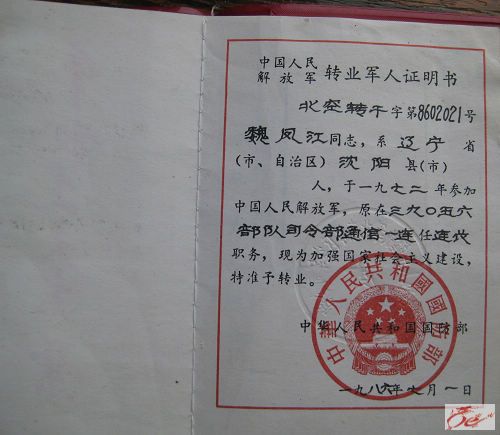 中国人民
解放军 转业军人证明书
北空转干字第8602021号
魏凤江同志，系辽宁省
(市、自治区) 沈阳县(市)
人，于一九七二年参加
中国人民解放军，原在三九〇五六
部队司令部通信一连任连代
职务，现为加强国家社会主义建设，
特准予转业。
中华人民共和国国防部
中華人民共和國國防部